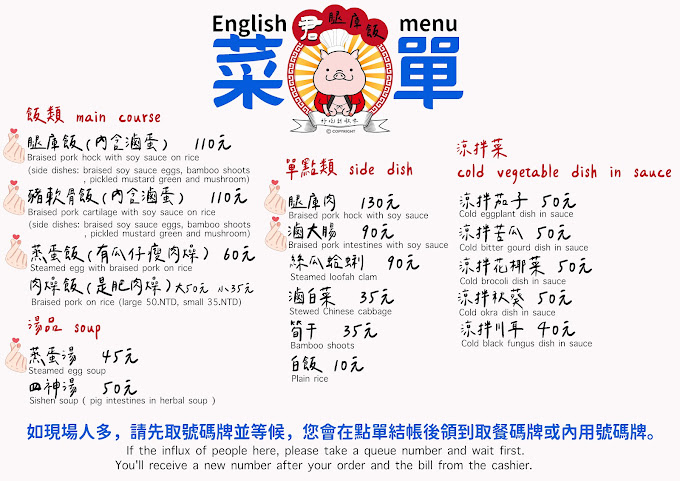 English menu
君 腿庫飯
菜單
COPYRIGHT
飯類 main course
腿庫飯(內含滷蛋) 110元
Braised pork hock with soy sauce on rice
(side dishes: braised soy sauce eggs, bamboo shoots
, pickled mustard green and mushroom)
豬軟骨飯(內含滷蛋) 110元
Braised pork cartilage with soy sauce on rice
(side dishes: braised soy sauce eggs, bamboo shoots
, pickled mustard green and mushroom)
蒸蛋飯(有瓜仔瘦肉燥) 60元
Steamed egg with braised pork on rice
肉燥飯(是肥肉燥) 大50元 小35元
Braised pork on rice (large 50.NTD, small 35.NTD)
湯品 soup
蒸蛋湯 45元
Steamed egg soup
四神湯 50元
Sishen soup ( pig intestines in herbal soup )
單點類 side dish
腿庫肉 130元
Braised pork hock with soy sauce
滷大腸 90元
Braised pork intestines with soy sauce
絲瓜蛤蜊 90元
Steamed loofah clam
滷白菜 35元
Stewed Chinese cabbage
筍干 35元
Bamboo shoots
白飯 10元
Plain rice
涼拌菜
cold vegetable dish in sauce
涼拌茄子 50元
Cold eggplant dish in sauce
涼拌苦瓜 50元
Cold bitter gourd dish in sauce
涼拌花椰菜 50元
Cold brocoli dish in sauce
涼拌秋葵 50元
Cold okra dish in sauce
涼拌川耳 40元
Cold black fungus dish in sauce
如現場人多，請先取號碼牌並等候，您會在點單結帳後領到取餐碼牌或內用號碼牌。
If the influx of people here, please take a queue number and wait first.
You'll receive a new number after your order and the bill from the cashier.